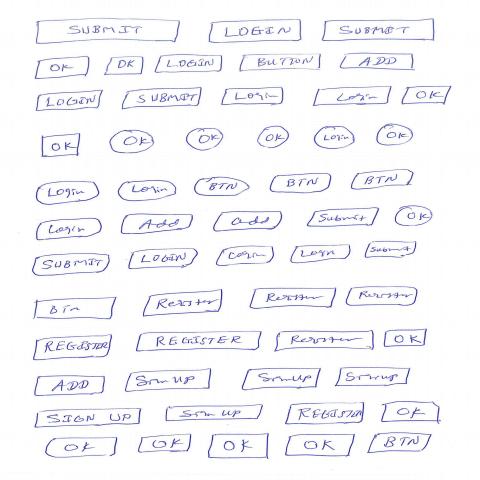 SUBMIT LOGIN SUBMIT
OK OK LOGIN BUTTON ADD
LOGIN SUBMIT Login Login OK
OK OK OK OK Login OK
Login Login BTN BTN BTN
Login Add add Submit OK
SUBMIT LOGIN Login Login Submit
Btn Register Register Register
REGISTER REGISTER Register OK
ADD SignUp SignUp Signup
SIGN UP Sign Up REGISTER OK
OK OK OK OK BTN